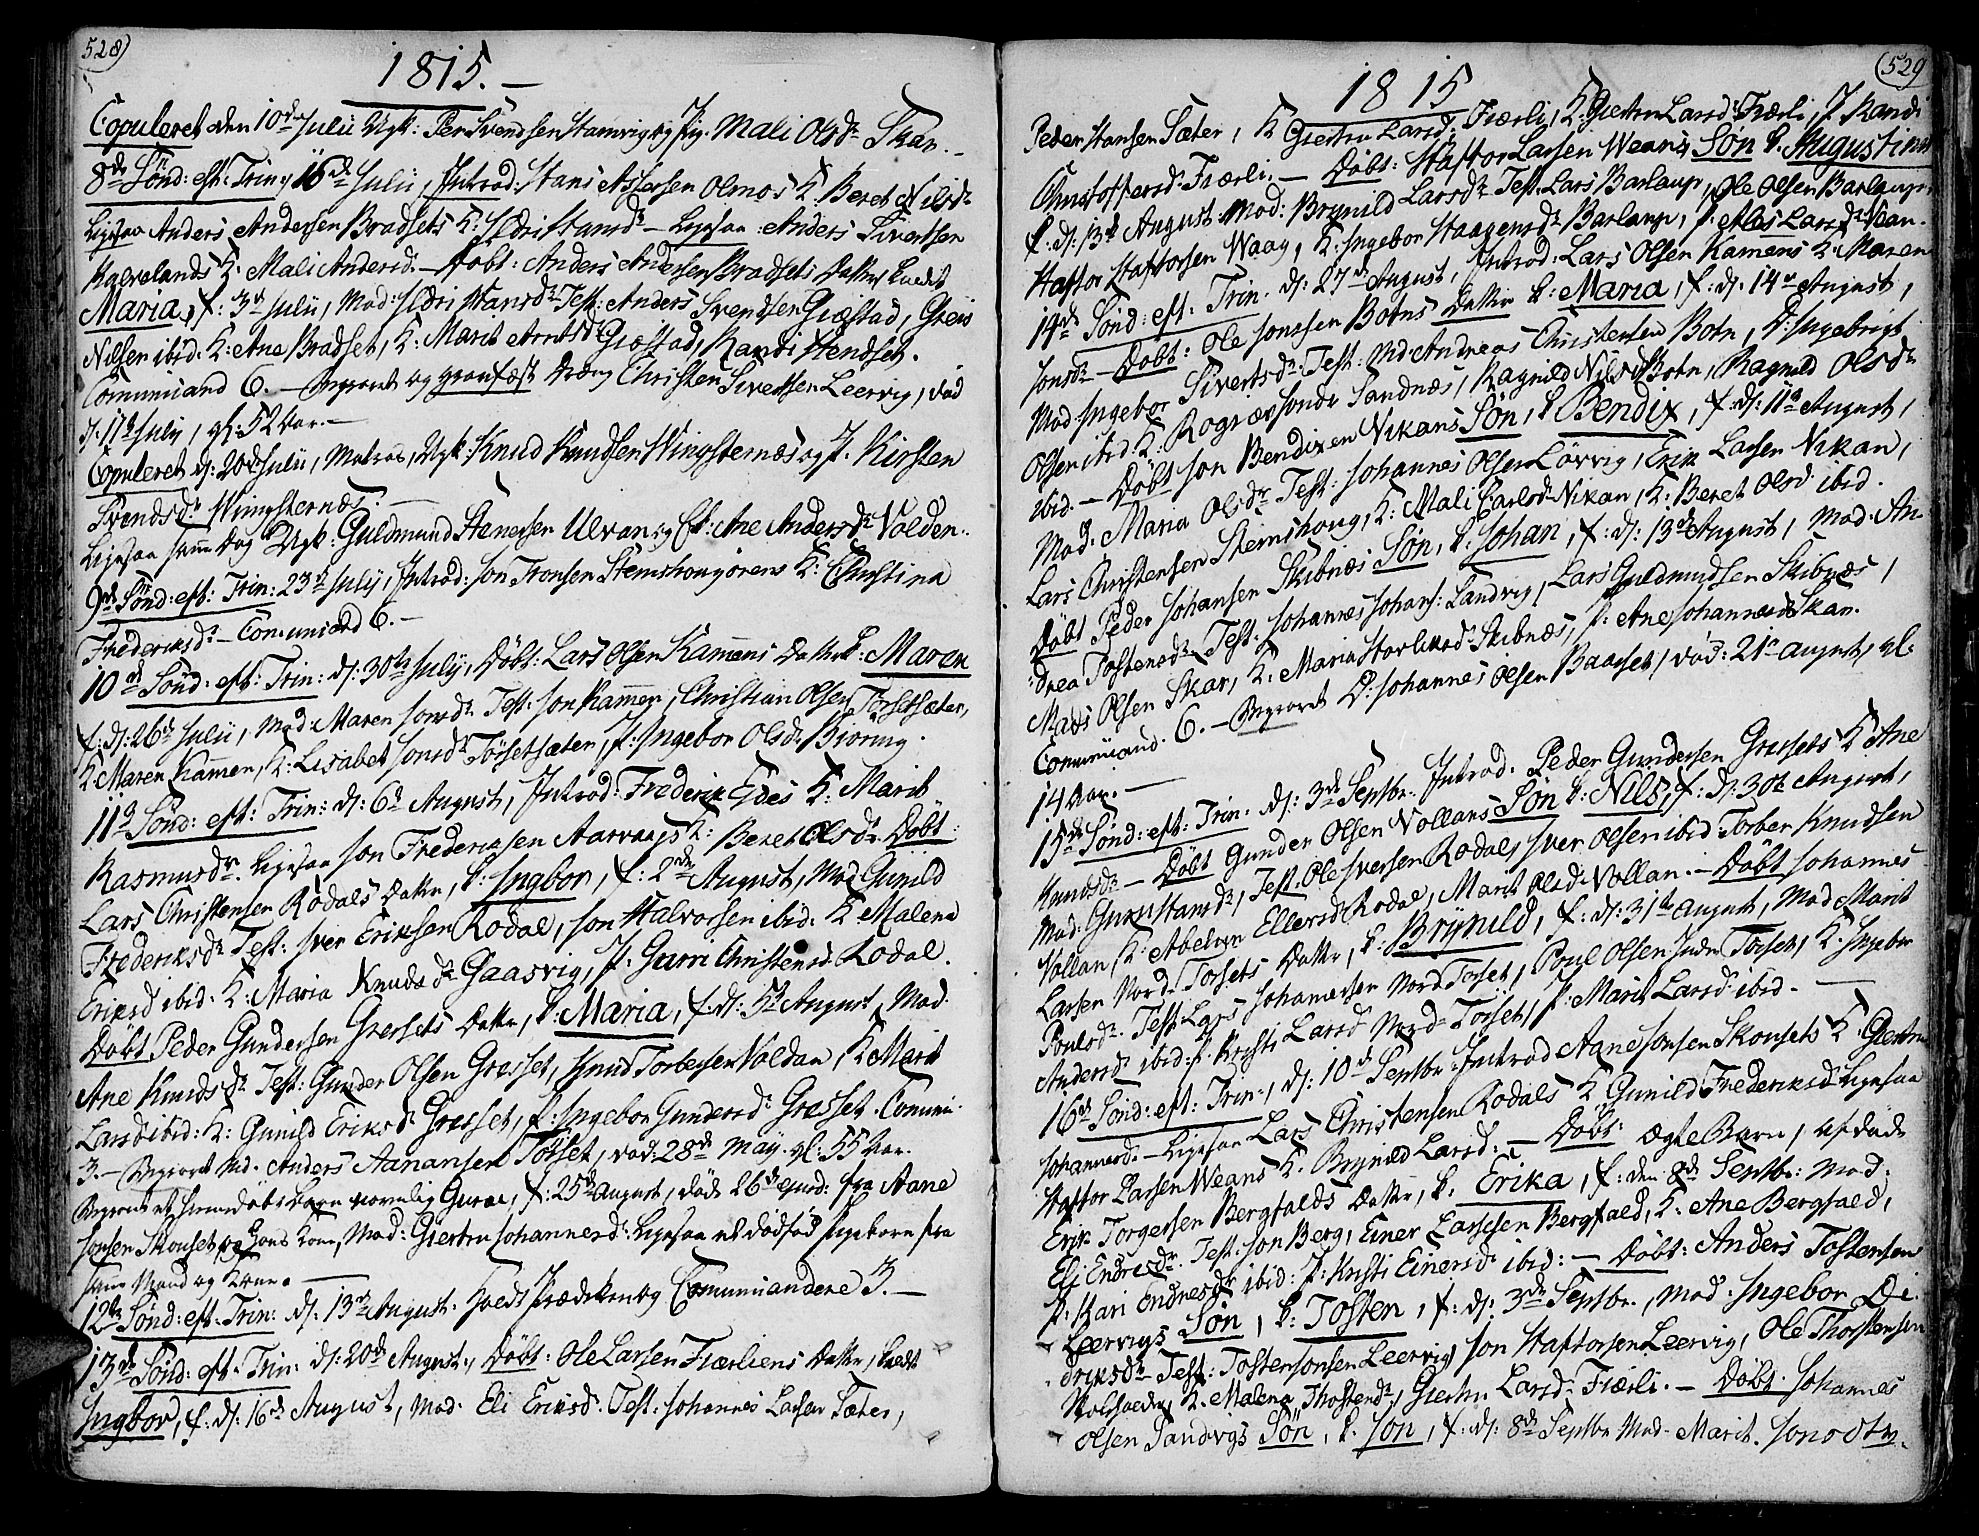 528)
1815.
Copuleret den 10de Julii Ugk: Per Svendsen Stamvig og Pig. Mali Olsdr Skar.
8de Sönd: eft. Trin: 16de Julii, Introd: Hans Assersen Olmos K. Beret Nilsdr
Ligesaa Anders Andersen Bradsets K: Sidri Hansdr – Ligesaa: Anders Sivertsen
Kalvelands K. Mali Andersd. – Döbt: Anders Andersen Bradsets Datter kaldt
Maria, f: 3de Julii, Mod: Sidri Hansdr Test: Anders Svendsen Giæstad, Greis
Nilsen ibid. K: Ane Bradset, K: Marit Arntsdr Giæstad, Randi Hendset.
Communicand 6. – Begravet og Dreng Christen Sivertsen Leervig, död
d: 17de July, gl: 52 Aar. –
Copuleret d: 20de Julii, Ugk: Knud Knudsen Wingsternæs og P. Kirsten
Svendsdr Wingsternæs. –
Ligesaa samme Dag Ugk: Guldmund Stenersen Ulvan og Ane Andersdr Volden.
9de Sönd: eft: Trin: 23de July, Introd: Jon Tronsen Stemshougörens K: Christina
Frederiksdr – Communicand 6. –
10de Sönd: eft: Trin: d: 30te July, Döbt: Lars Olsen Kamens Datter k: Maren
f: d: 26de Julii, Mod: Maren Jonsdr Test: Jon Kamen, Christian Olsen Torsetsæter,
K: Maren Kamen, K: Lisabet Jonsdr Törsetsæter, P: Ingebor Olsdr Biöring.
11te Sönd: eft: Trin: d: 6te August, Introd: Frederik Edes K: Marit
Rasmusdr. Ligesaa Jon Frederiksen Aarvaags K: Beret Olsdr. Döbt:
Lars Christensen Rodals Datter, k: Ingbor, f: 2de August, Mod Gunild
Frederiksdr Test: Iver Eriksen Rodal, Jon Halvorsen ibid. K Malena
Eriksd ibid. K: Maria Knudsdr Gaasvig, P. Gurri Christensd. Rodal.
Döbt Peder Gundersen Gresets Datter, k: Maria, f: d: 5te August, Mod:
Ane Knudsdr Test: Gunder Olsen Gresset, Knud Torbersen Voldan, K Marit
Larsd ibid: K: Gunild Eriksd. Gresset, P: Ingebor Gundersdr Gresset. Communi.
3. – Begravet Md. Anders Aanansen Törset, död: 28de May. gl: 55 Aar.
Begravet et hiemmedöbt Barn navnlig Guroe, f: 25de August, döde 26de fra Aane
Jonsen Skouset og Hans Kone, Mod: Giertru Johannesd: Ligesaa et dödfød Pigebarn fra
samme Mand og Kone. –
12te Sönd: eft. Trin: d: 13de August. holdt Prædiken og Communicandere 3. –
13de Sönd: eft. Trin: d: 20de August, Döbt: Ole Larsen Fiærliens Datter, kaldt
Ingbor, f: d: 16de August, Mod: Eli Eriksd. Test: Johannes Larsen Sæter,
(529
1815
Peder Hansen Sæter, K Giertru Larsd. Fiærli, K: Giertru Larsd: Fiærli, P Randi
Christoffersd. Fiærli. – Döbt: Haftor Larsen Weans Søn k. Augustinus
f: d: 13de August Mod: Brynild Larsdr Test. Lars Barlaup, Ole Olsen Barlaup,
Haftor Haftorsen Waag, K: Ingebor Haagensdr Barlaup, P. Ales Larsdr Vean.
14de Sönd: eft: Trin. d: 27de August, Introd: Lars Olsen Kamens K: Maren
Jonsdr – Döbt: Ole Jonssen Botns Datter k: Maria, f: d: 14de August,
Mod: Ingebor Sivertsdr Test: Md: Andreas Christensen Botn, D: Ingebrigt
Olsen ibid. K: Jonsdr Sandnæs, Ragnild Nilsd Botn, Ragnild Olsdr
ibid. – Döbt Jon Bendixen Nikans Søn, k Bendix, f: d: 11te August,
Mod. Maria Olsdr Test: Johannes Olsen Lövvig, Erik Larsen Nikan,
Lars Christensen Stemshoug, K: Mali Carlsdr Nikan, K: Beret Olsd. ibid.
Döbt Peder Johansen Skibnæs Søn, k. Johan, f: d: 13de August, Mod. An-
drea Tostensdr. Test: Johannes Johans: Sandvig, Lars Guldmundsen Skibnæs,
Mads Olsen Skar, K. Maria Skibnæs, P. Ane Johannesdr Skar.
Communicand. 6. – Begravet D: Johannes Olsen Baasset, död: 21de August, gl:
14 Aar. –
15de Sönd: eft: Trin. d: 3de Septbr. Introd. Peder Gundersen Gressets K Ane
Knudsdr. – Döbt Gunder Olsen Vollans Søn k: Nils, f: d: 30te August,
Mod: Guru Hansdr, Test. Ole Iversen Rodal, Iver Olsen ibid Torber Knudsen
Vollan, K: Abelvge Ellersd Rodal, Marit Olsd: Vollan. – Döbt Johannes
Larsen Nord-Torsets Datter, k: Brynild, f: d: 31te August, Mod Marit
Poulsdr. Test Lars Johannesen Nord Torset, Poul Olsen Indre Torset, K. Ingebor
Andersd ibid: P. Kristi Larsd Nord-Törset, P: Marit Larsd ibid. –
16de Sönd: eft: Trin: d: 10de Septbr Introd Aane Jonsen Skousets K. Giertru
Johannesdr. – Ligesaa Lars Christensen Rodals K Gunild Frederiksd. Ligesaa
Haftor Larsen Weans K. Brynild Larsd: – Döbt: Ægte Barn, af döde
Erik Torgersen Bergfalds Datter, k. Erika, f: den 8de Septbr: Mod:
Eli Endresdr. Test: Jon Berg, Einer Larssen Bergfald, K. Ane Bergfald,
P. Kari Endresdr ibid: P: Kristi Einersdr ibid: – Döbt: Anders Tostensen
Leervigs Søn, k: Tosten, f: d: 3de Septbr., Mod: Ingebor Di-
driksdr Test: Tosten Jonsen Leervig, Jon Haftorsen Leervig, Ole Thorstensen
K. Malena Thostendr, Giertru Larsd. Fiærli. – Döbt. Johannes
Olsen Sandvigs Søn, k. Jon, f: d: 8de Septbr Mod. Marit Jonsdtr.